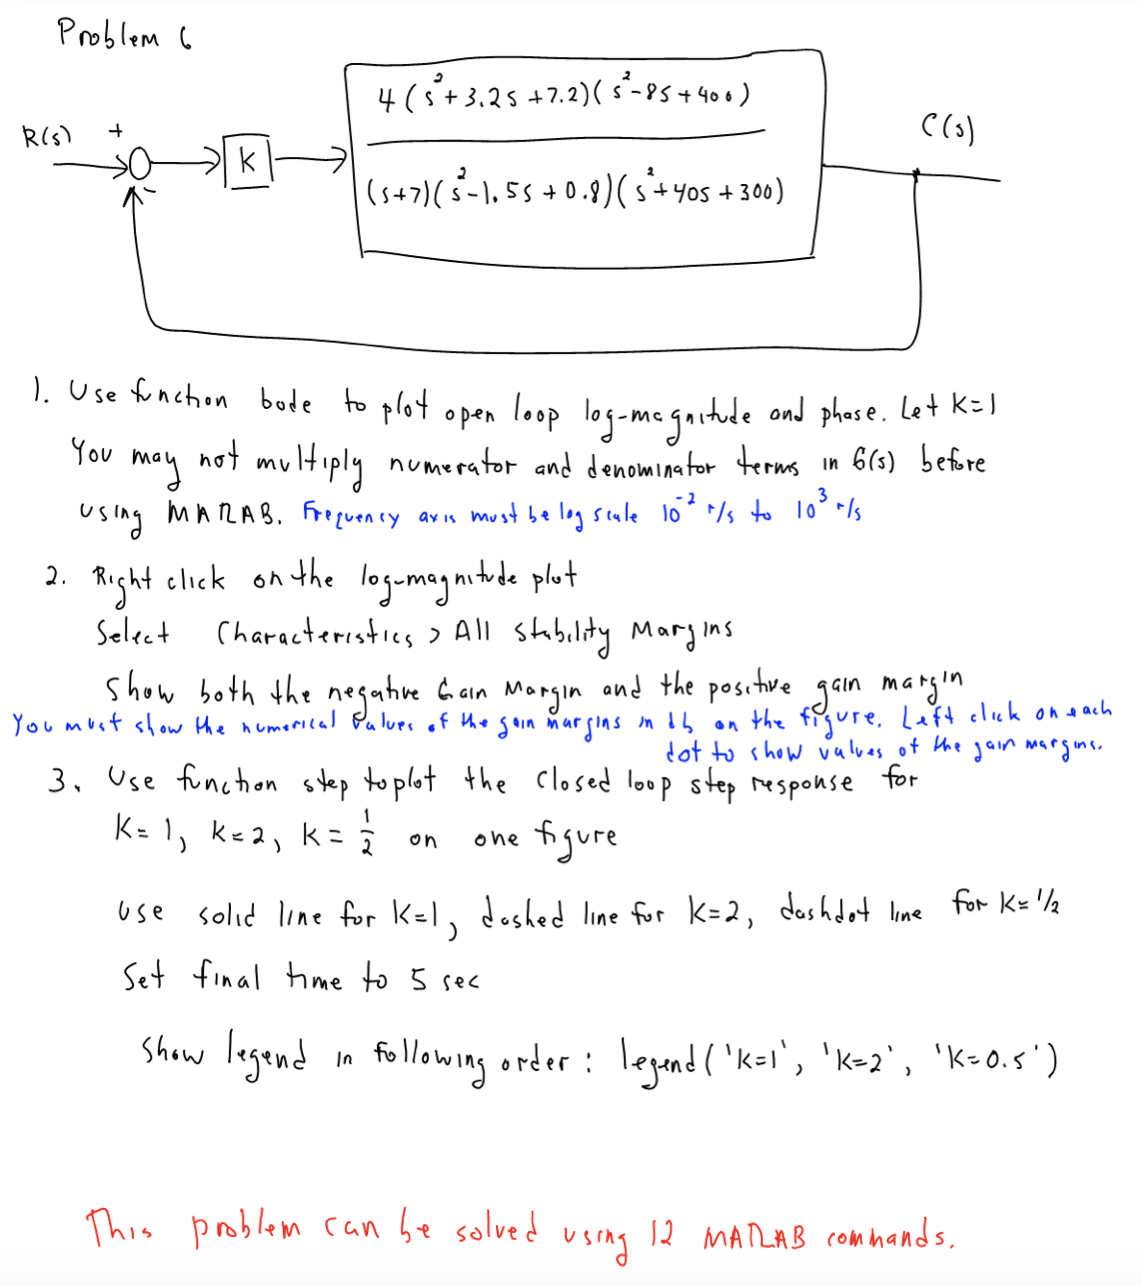 Problem 6
4(s²+3.2s+7.2)(s²-8s+400)
R(s) + C(s)
K
(s+7)(s²-1.5s+0.8)(s²+40s+300)
-
1. Use function bode to plot open loop log-magnitude and phase. Let K=1
You may not multiply numerator and denominator terms in G(s) before
using MATLAB. Frequency axis must be log scale 10⁻² r/s to 10³ r/s
2. Right click on the log-magnitude plot
Select Characteristics > All Stability Margins
Show both the negative Gain Margin and the positive gain margin
You must show the numerical values of the gain margins in db on the figure. Left click on each
dot to show values of the gain margins.
3. Use function step to plot the closed loop step response for
K=1, K=2, K=1/2 on one figure
Use solid line for K=1, dashed line for K=2, dashdot line for K=1/2
Set final time to 5 sec
Show legend in following order: legend('K=1', 'K=2', 'K=0.5')
This problem can be solved using 12 MATLAB commands.